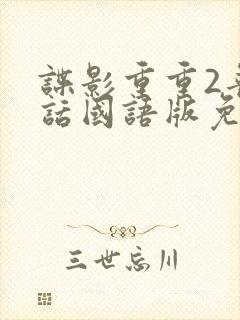 諜影重重2
話國語版免
三世忘川